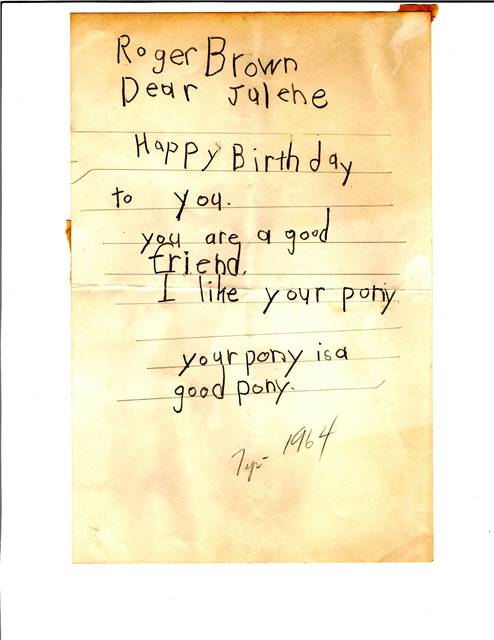 Roger Brown
Dear Julene
Happy Birthday
to you.
you are a good
friend.
I like your pony
your pony is a
good pony.
1964